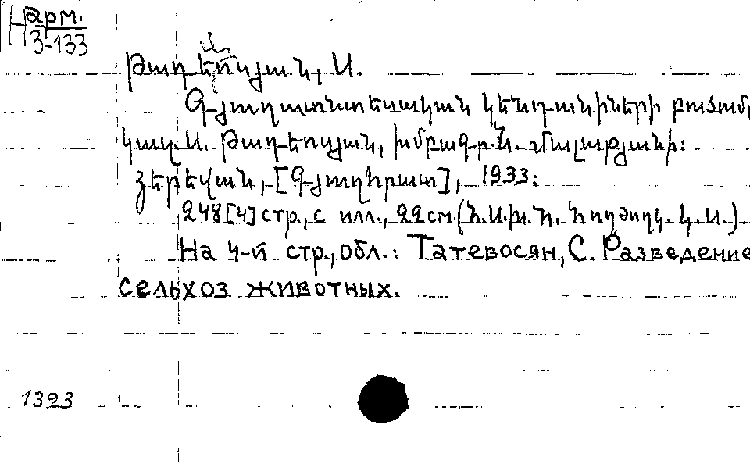 Н арм.
3-133
Թադևոսյան, Ս.
Գյուղատնտեսական կենդանիների բուծում
կազմ. Ս. Թադևոսյան, խմբագր. Ն.
Յերեվան, [Գյուղհրատ], 1933:
248 [4] стр., с илл., 22 см. (Խ.Ս.Խ.Հ. Հողժողկ. Կ.Ս.)
На 4-й стр., обл.: Татевосян, С. Разведение
сельхоз животных.
1323